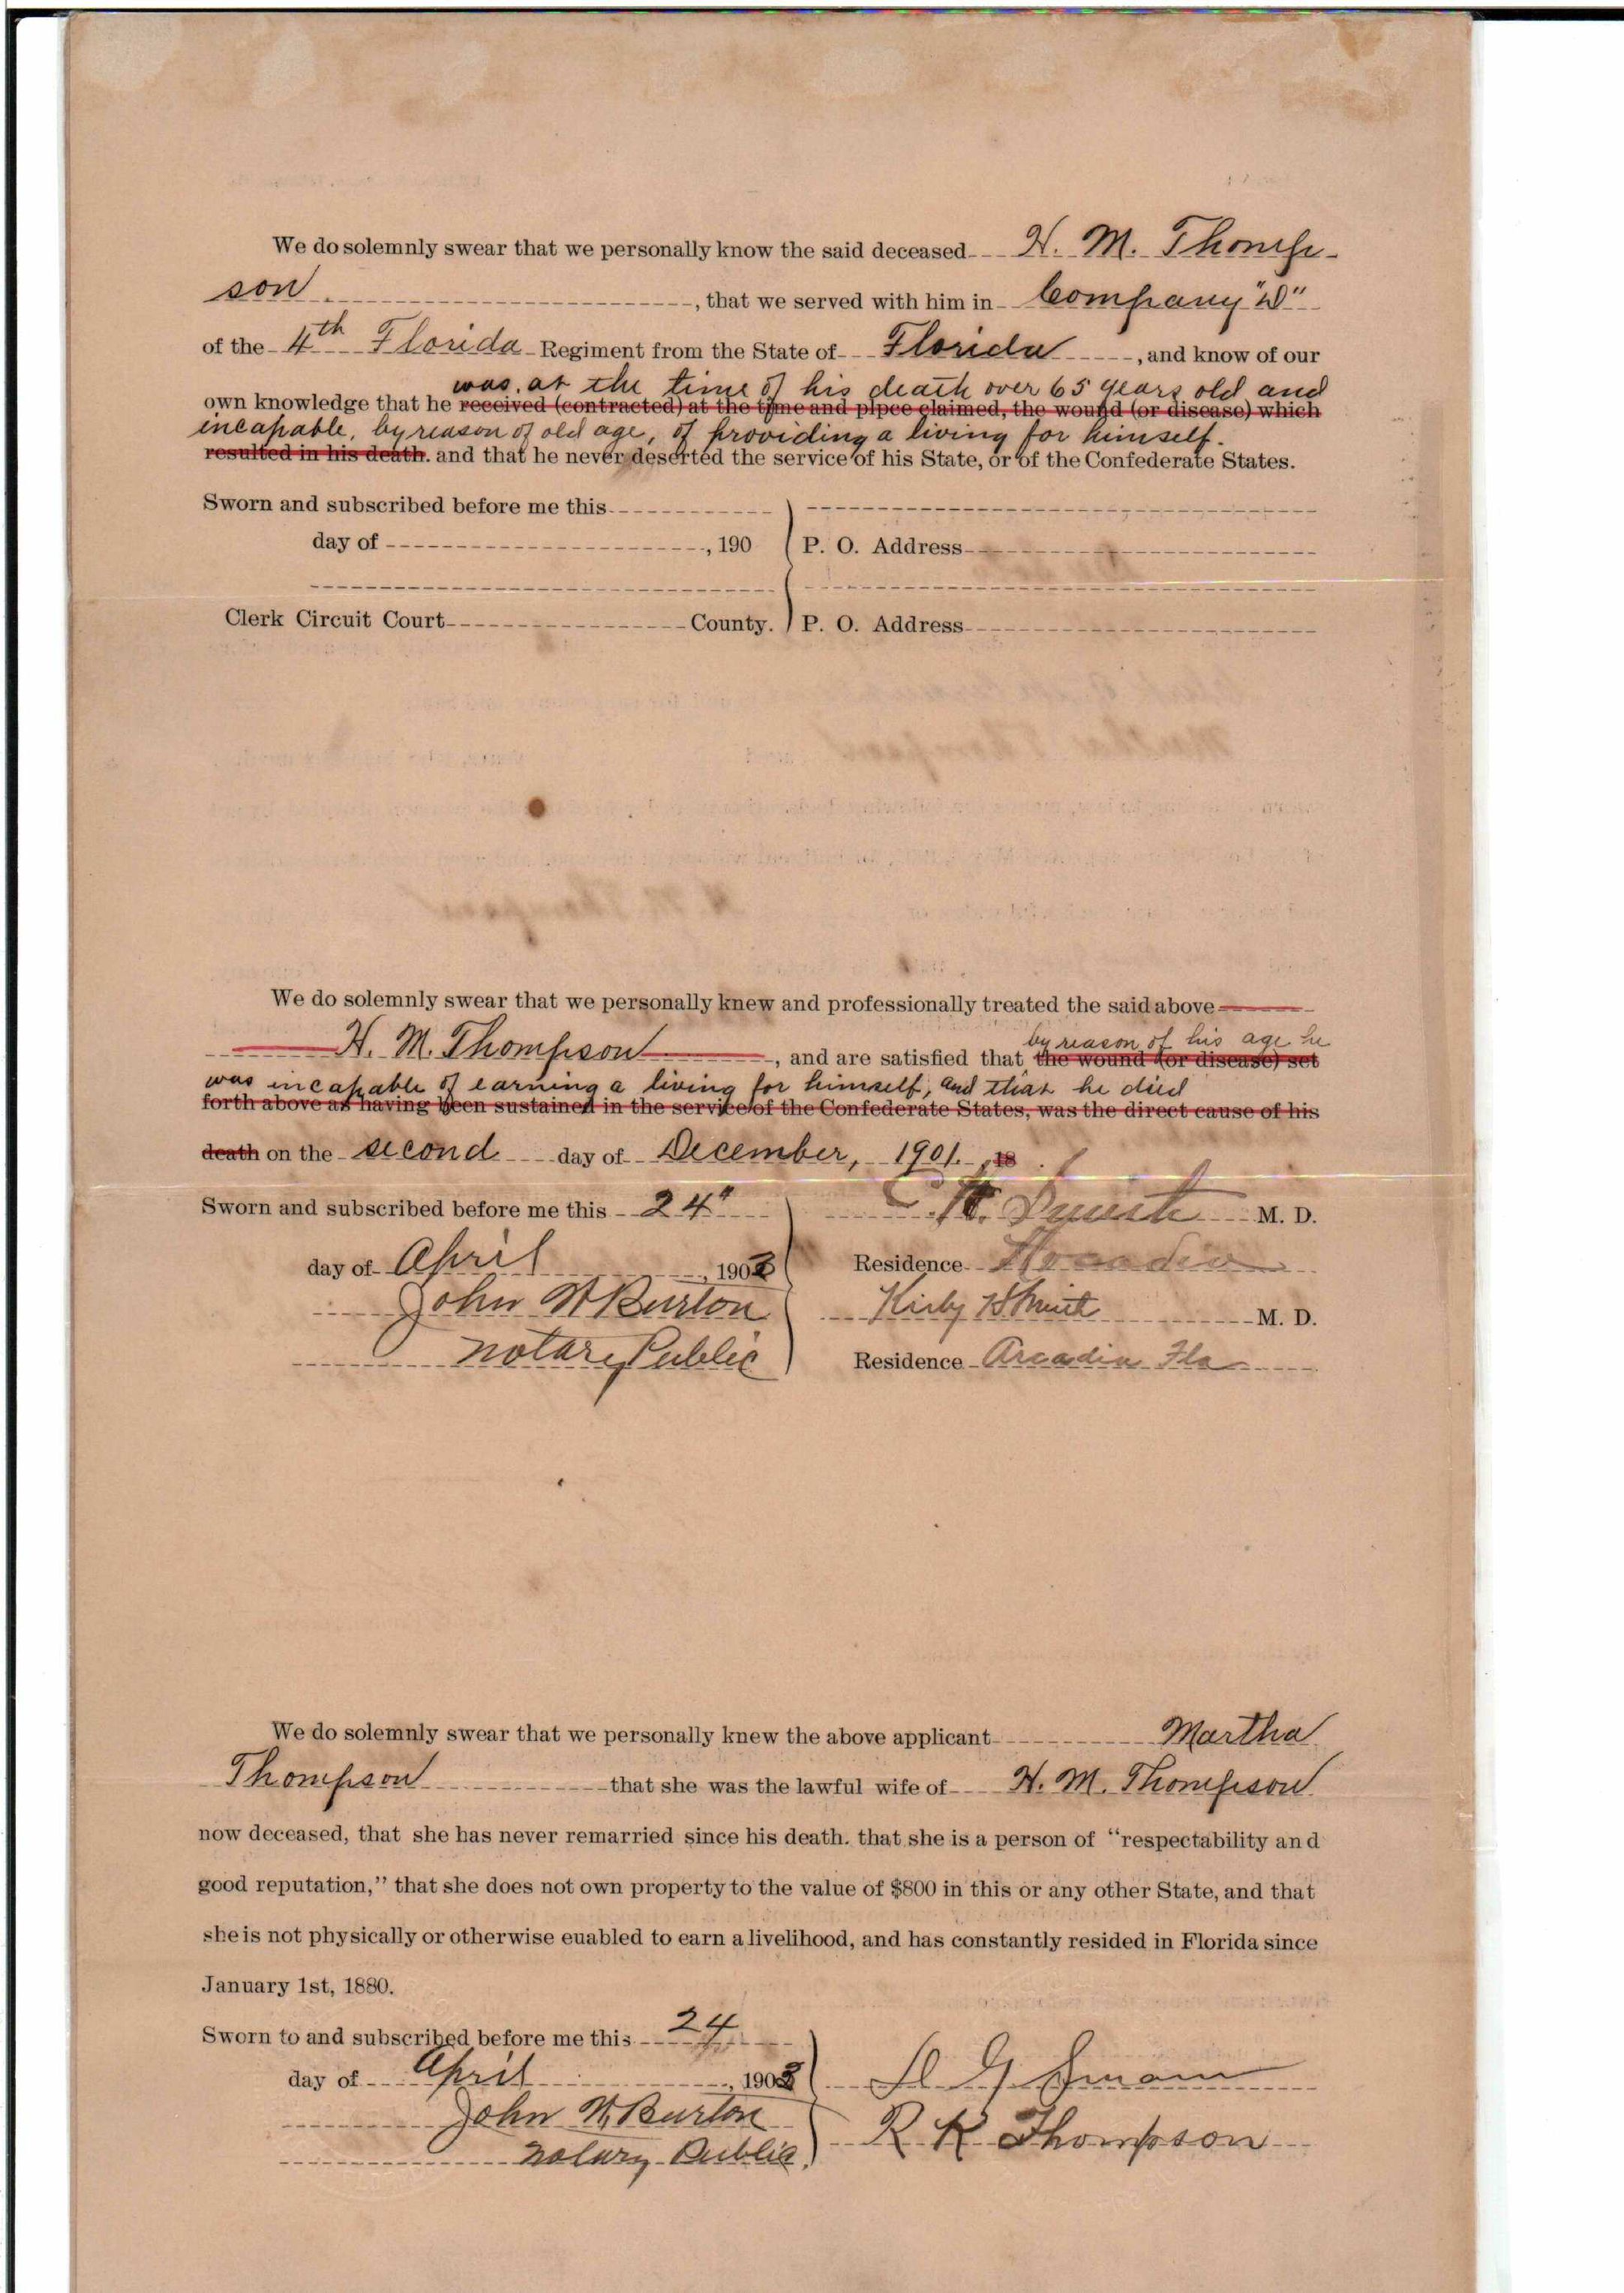 We do solemnly swear that we personally know the said deceased H. M. Thomp-
son, that we served with him in Company "D"
of the 4th Florida Regiment from the State of Florida, and know of our
was, at the time of his death over 65 years old and
own knowledge that he received (contracted) at the time and plpce claimed, the wound (or disease) which
incapable, by reason of old age, of providing a living for himself.
resulted in his death. and that he never deserted the service of his State, or of the Confederate States.
Sworn and subscribed before me this
day of , 190 P. O. Address
Clerk Circuit Court County. P. O. Address
We do solemnly swear that we personally knew and professionally treated the said above
by reason of his age he
H. M. Thompson, and are satisfied that the wound (or disease) set
was incapable of earning a living for himself, and that he died
forth above as having been sustained in the service of the Confederate States, was the direct cause of his
death on the second day of December, 1901. , 18
Sworn and subscribed before me this 24" M. D.
day of April, 1903 Residence
John W Burton Kirby M. D.
Notary Public Residence Arcadia Fla
We do solemnly swear that we personally knew the above applicant Martha
Thompson that she was the lawful wife of H. M. Thompson
now deceased, that she has never remarried since his death. that she is a person of "respectability and
good reputation," that she does not own property to the value of $800 in this or any other State, and that
she is not physically or otherwise euabled to earn a livelihood, and has constantly resided in Florida since
January 1st, 1880.
Sworn to and subscribed before me this 24
day of April, 1903
John W Burton R K Thompson
Notary Public.